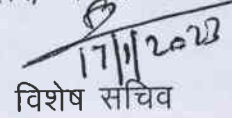 17/1/2023
विशेष सचिव